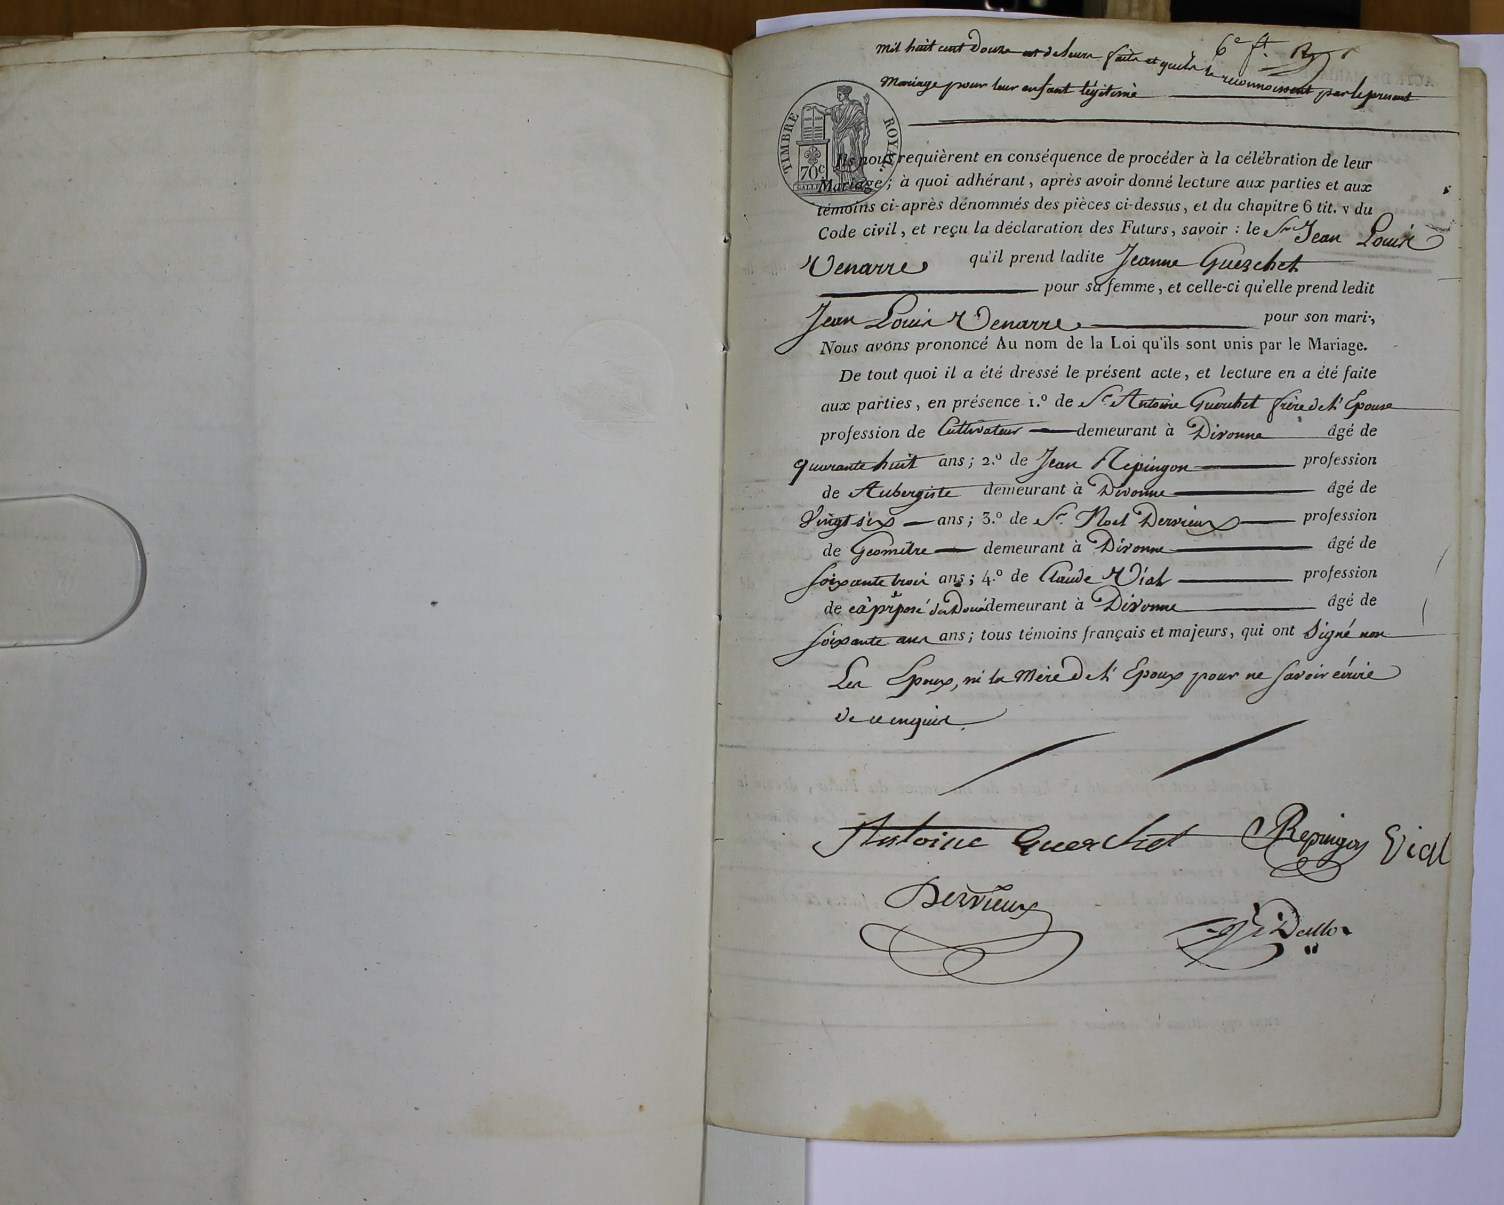 6e ft.
mil huit cent Douze est de leurs faits et qu'ils le reconnoissent par le présent
Mariage pour leur enfant légitime
TIMBRE ROYAL
70c
Ils nous requièrent en conséquence de procéder à la célébration de leur
Mariage; à quoi adhérant, après avoir donné lecture aux parties et aux
témoins ci-après dénommés des pièces ci-dessus, et du chapitre 6 tit. v du
Code civil, et reçu la déclaration des Futurs, savoir : le Sr Jean Louis
Venarre qu'il prend ladite Jeanne Guerchet
pour sa femme, et celle-ci qu'elle prend ledit
Jean Louis Venarre pour son mari;
Nous avons prononcé Au nom de la Loi qu'ils sont unis par le Mariage.
De tout quoi il a été dressé le présent acte, et lecture en a été faite
aux parties, en présence 1.º de Sr Antoine Guerchet frère de l'Epouse
profession de Cultivateur demeurant à Divonne âgé de
quarante huit ans; 2.º de Jean Repingon profession
de Aubergiste demeurant à Divonne âgé de
Vingt six ans; 3.º de Sr. Noel Dervieux profession
de Géomêtre demeurant à Divonne âgé de
soixante trois ans; 4.º de Claude Vial profession
de préposé des Doua demeurant à Divonne âgé de
soixante ans ans; tous témoins français et majeurs, qui ont signé non
Les Epoux, ni la Mère de l'Epoux pour ne savoir écrire
de ce enquis
Antoine Guerchet Repingon Vial
Dervieux